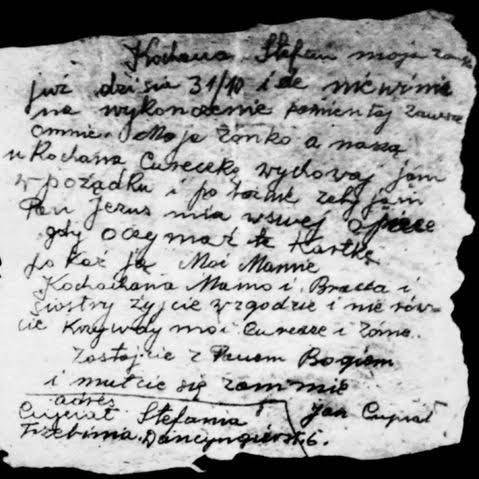 Kochana Stefciu moja żonko
już dzisia 31/10 ide niewinie
na wykończenie pamientaj zawsze
omnie. Moja żonko a naszą
ukochana Cureczkę wychowaj jam
w pożądku i po żeby jam
Pan Jezus mia wswej opiece
gdy ocymasz te Kartkę
pokaż ją Moi Mamie
Kochachana Mamo i Bracia i
siostry żyjcie wzgodzie i nie rów-
cie krzywdy moi Curecce i żonie.
Zostojcie z Panem Bogiem
i mutlcie się zammie
adres
Cuprał Stefania Jan Cuprał
Trzebinia. 6.